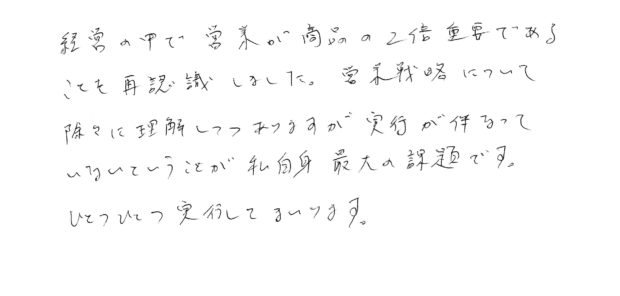 経営の中で営業が商品の2倍重要である
ことも再認識しました。営業戦略について
除々に理解しつつありますが実行が伴なって
いないということが私自身最大の課題です。
ひとつひとつ実行してまいります。